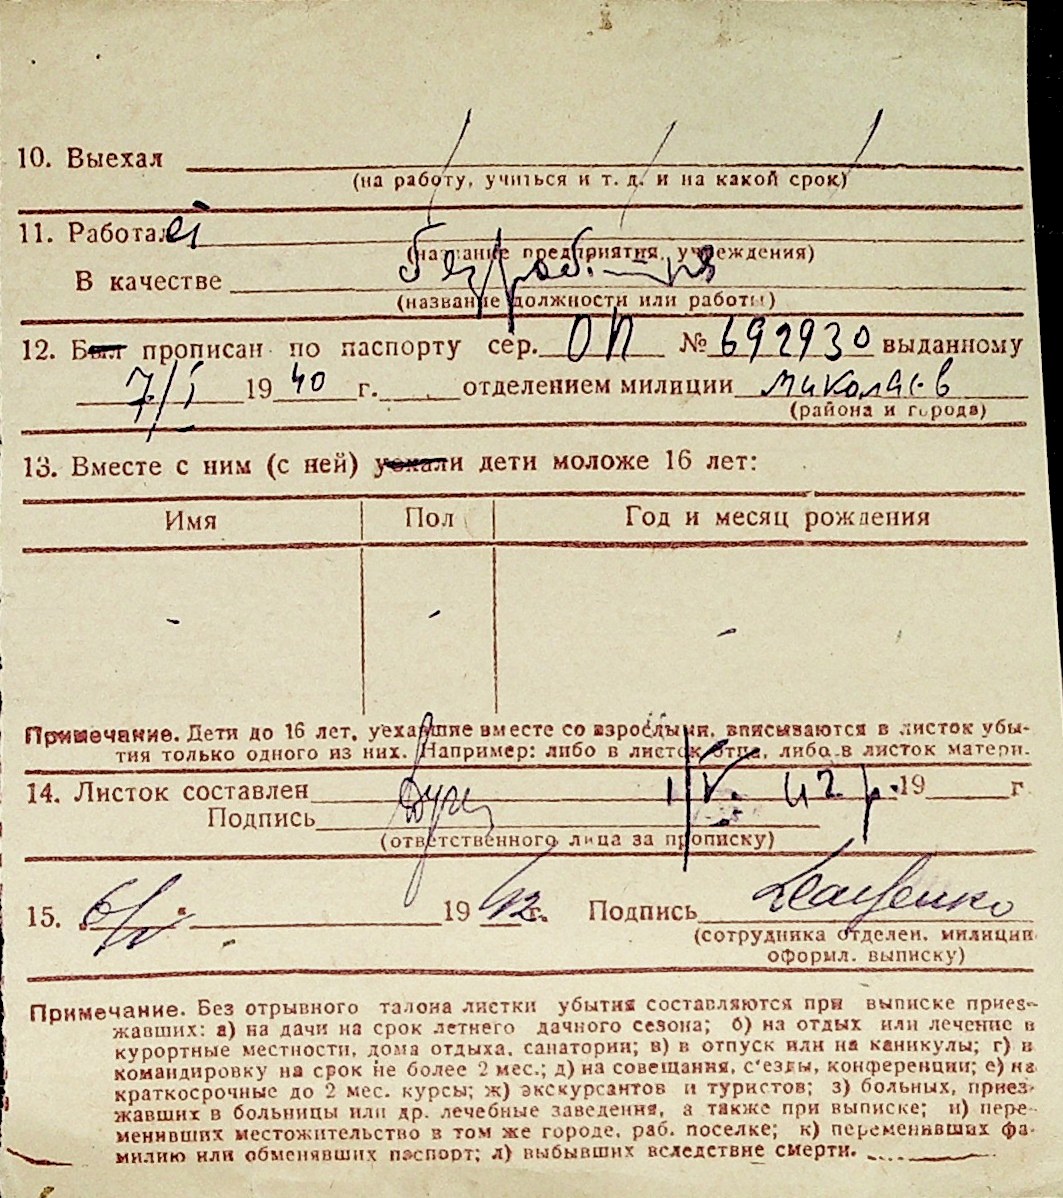 10. Выехал
(на работу, учиться и т. д. и на какой срок)
11. Работал
(название предприятия, учреждения)
В качестве
(название должности или работы)
12. Был прописан по паспорту сер. ОП № 692930 выданному
7/I 1940 г. отделением милиции Миколаєв
(района и города)
13. Вместе с ним (с ней) уехали дети моложе 16 лет:
Имя Пол Год и месяц рождения
- - -
Примечание. Дети до 16 лет, уехавшие вместе со взрослыми, вписываются в листок убы-
тия только одного из них. Например: либо в листок отца, либо в листок матери.
14. Листок составлен 1/V. 42 г. 19 г
Подпись
(ответственного лица за прописку)
15. 6/V 1942 г. Подпись
(сотрудника отделен. милиции
оформл. выписку)
Примечание. Без отрывного талона листки убытия составляются при выписке приез-
жавших: а) на дачи на срок летнего дачного сезона; б) на отдых или лечение в
курортные местности, дома отдыха, санатории; в) в отпуск или на каникулы; г) в
командировку на срок не более 2 мес.; д) на совещания, с'езды, конференции; е) на
краткосрочные до 2 мес. курсы; ж) экскурсантов и туристов; з) больных, приез-
жавших в больницы или др. лечебные заведения, а также при выписке; и) пере-
менивших местожительство в том же городе, раб. поселке; к) переменявших фа-
милию или обменявших паспорт; л) выбывших вследствие смерти.